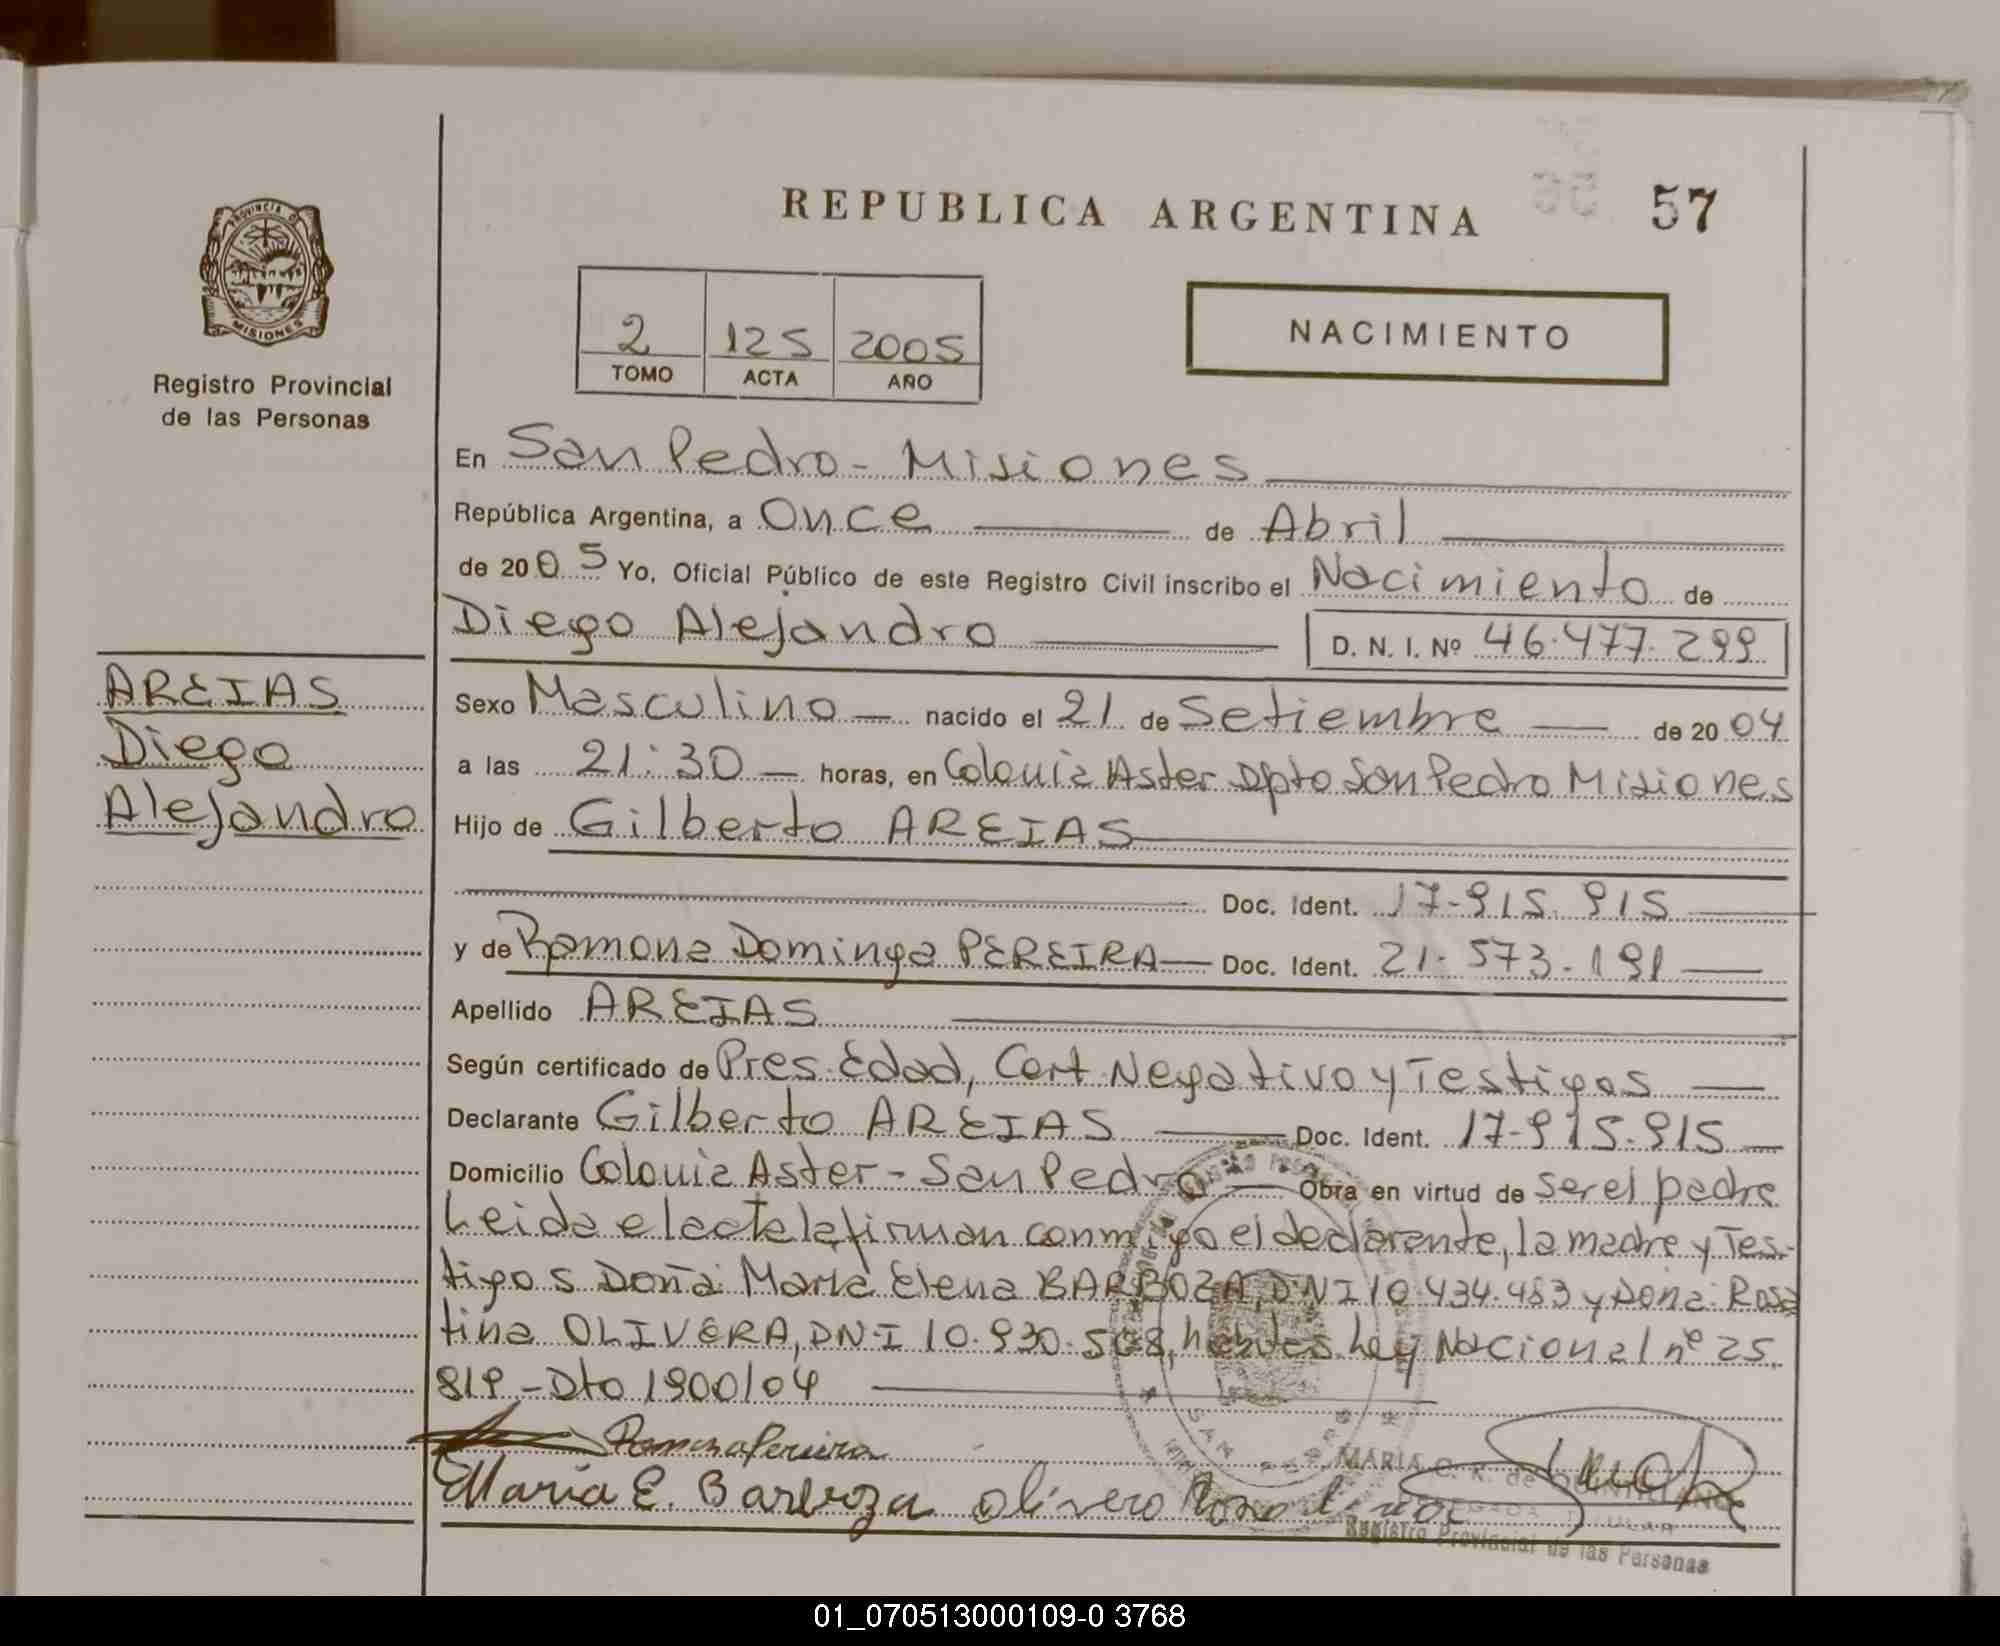 REPUBLICA ARGENTINA
57
PROVINCIA DE
MISIONES
Registro Provincial
de las Personas
2 125 2005
TOMO ACTA AÑO
NACIMIENTO
En San Pedro - Misiones
República Argentina, a Once de Abril
de 2005 Yo, Oficial Público de este Registro Civil inscribo el Nacimiento de
Diego Alejandro D. N. I. Nº 46.477.299
AREIAS
Diego
Alejandro
Sexo Masculino nacido el 21 de Setiembre de 2004
a las 21:30 horas, en Colonia Aster Dpto San Pedro Misiones
Hijo de Gilberto AREIAS
Doc. Ident. 17-915.915
y de Ramona Dominga PEREIRA Doc. Ident. 21.573.191
Apellido AREIAS
Según certificado de Pres. Edad, Cert Negativo y Testigos
Declarante Gilberto AREIAS Doc. Ident. 17-915.915
Domicilio Colonia Aster - San Pedro Obra en virtud de ser el padre
Leida el acta la firman conmigo el declarante, la madre y Tes-
tigos Doña: María Elena BARBOZA, DNI 10.434.483 y Dona: Rosa
tina OLIVERA, DNI 10.930.508, Ley Nacional nº 25.
819 - Dto 1900/04
Ramona Pereira
Maria E. Barboza
SAN PEDRO
MARIA C. R. de
Registro Provincial de las Personas
01_070513000109-0 3768